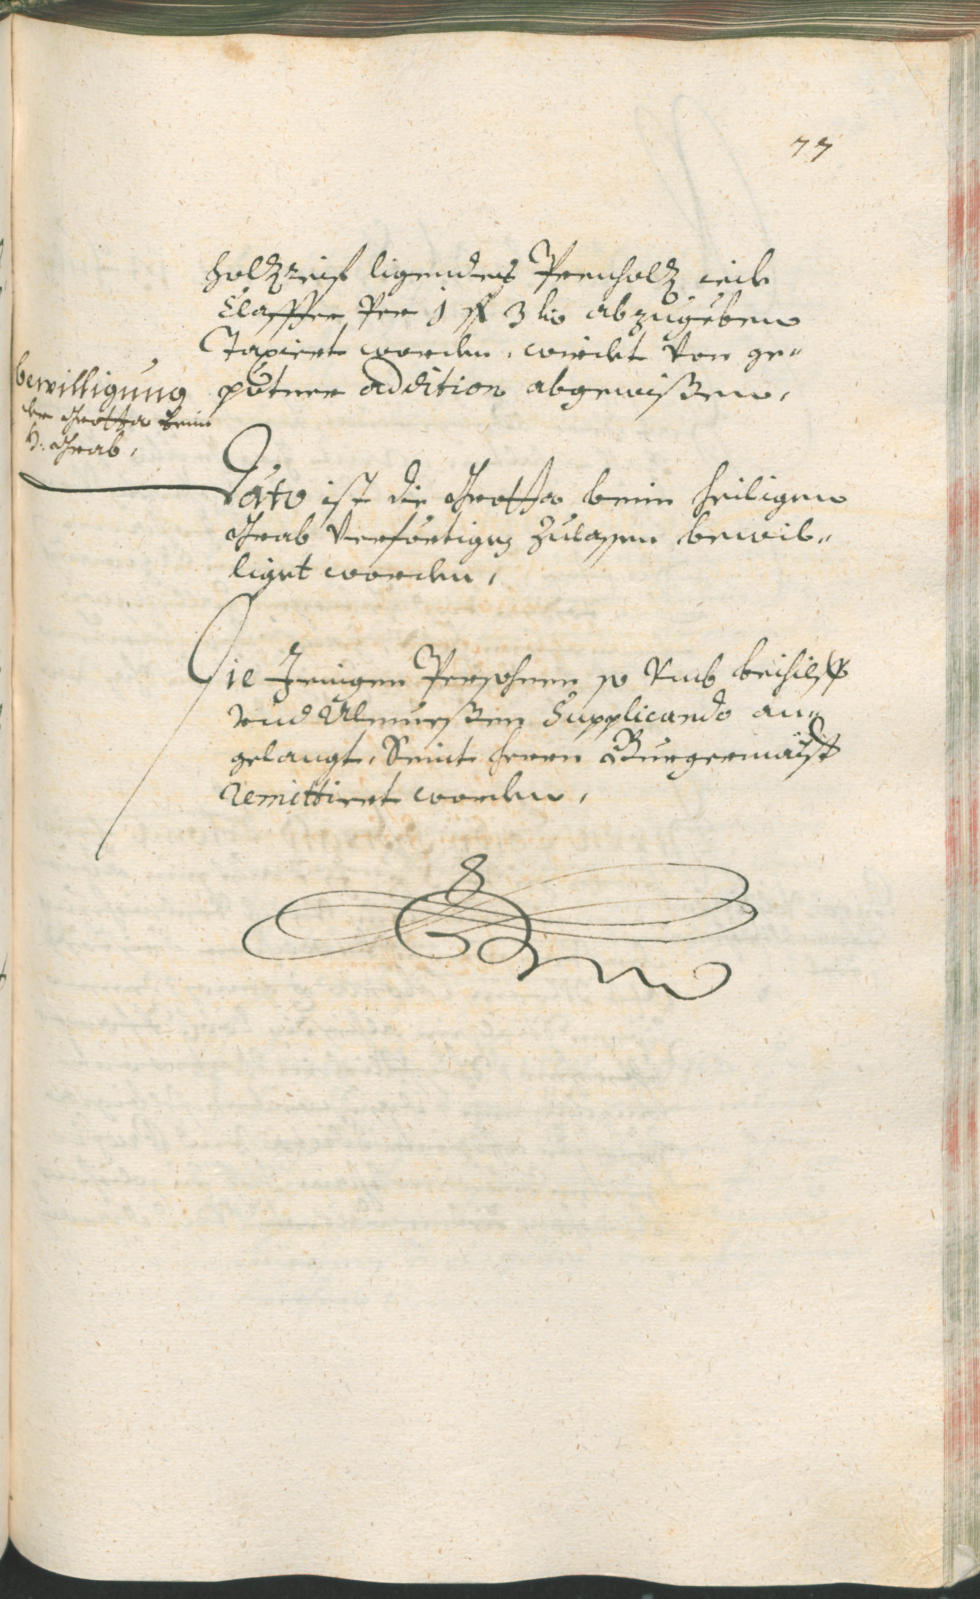 77
holzreiß ligendes Prenholz iede
Claffter Per 1 fl 3 bz abzugeben
Taxiert worden, würdet von ge-
petner addition abgewißen,
bewilligung
der Grotta beim
H: Grab,
Dato ist die Grotta beim heiligen
Grab Verfertigen Zulassen bewil-
liget worden,
Die Jenigen Persohnen so Vmb beihilff
vnd Almueßen Supplicando an-
gelangt, Seint herrn Burgermaist
remittiert worden,